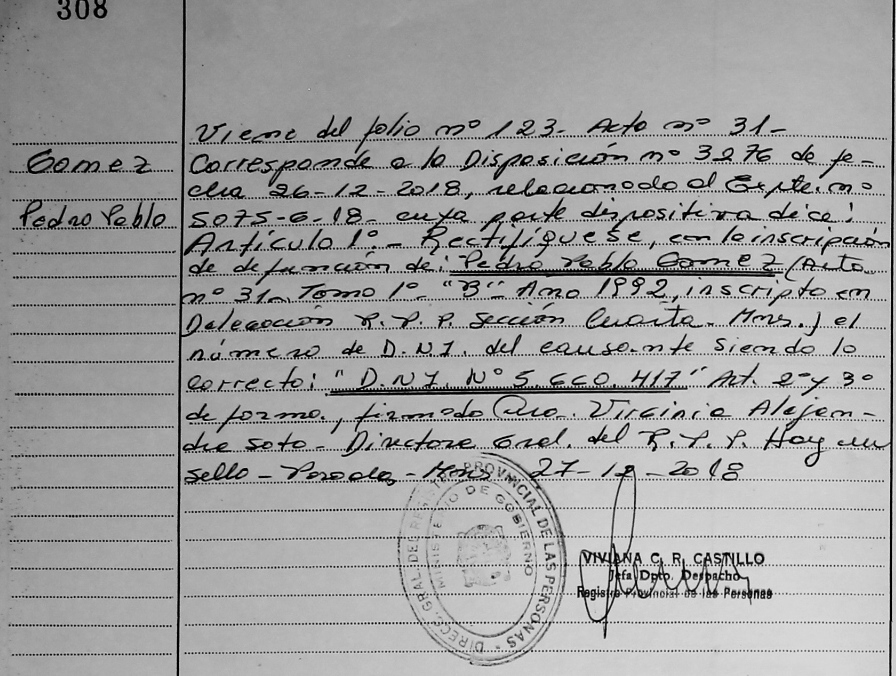 308
Viene del folio nº 123- Acta nº 31-
Gomez
Corresponde a la Disposición nº 3276 de fe-
cha 26-12-2018, relacionado al Expte. nº
Pedro Pablo
5075-G-18- cuya parte dispositiva dice:
Artículo 1º- Rectifíquese, en la inscripción
de defunción de: Pedro Pablo Gomez (Acta
nº 31- Tomo 1º- "B"- Año 1992, inscripto en
Delegación R.P.P. Sección Cuarta- Mnes.) el
número de D.N.I. del causante siendo lo
correcto: "D.N.I. Nº 5.660.417" Art. 2º y 3º
de forma, firmado Virginia Alejan-
dra Soto- Directora Gral. del R.P.P. Hay un
sello- Posadas- Mnes 27-12-2018
DIREC. GRAL. DEL REGISTRO PROVINCIAL DE LAS PERSONAS
MINISTERIO DE GOBIERNO
VIVIANA C. R. CASTILLO
Jefa Dpto. Despacho
Registro Provincial de las Personas